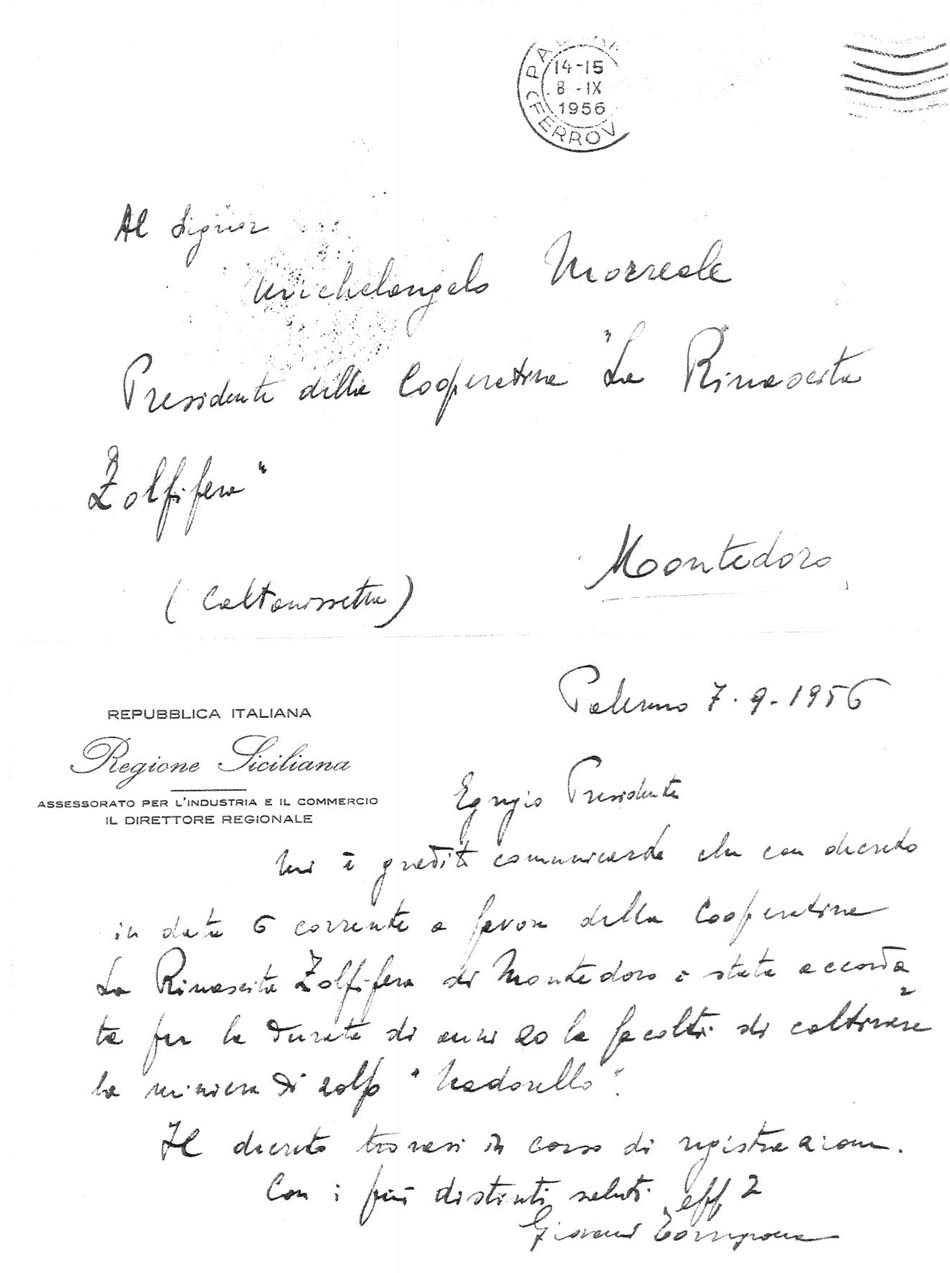 PA
14-15
8-IX
1956
FERROV
Al Signor
Michelangelo Morreale
Presidente della Cooperativa "La Rinascita
Zolfifera"
Montedoro
(Caltanissetta)
Palermo 7.9.1956
REPUBBLICA ITALIANA
Regione Siciliana
ASSESSORATO PER L'INDUSTRIA E IL COMMERCIO
IL DIRETTORE REGIONALE
Egregio Presidente
Mi è gradito comunicarle che con decreto
in data 6 corrente a favore della Cooperativa
La Rinascita Zolfifera di Montedoro è stata accorda
ta per la durata di anni 20 la facoltà di coltivare
la miniera di zolfo "Nadorello".
Il decreto trovasi in corso di registrazione.
Con i più distinti saluti
Giovanni